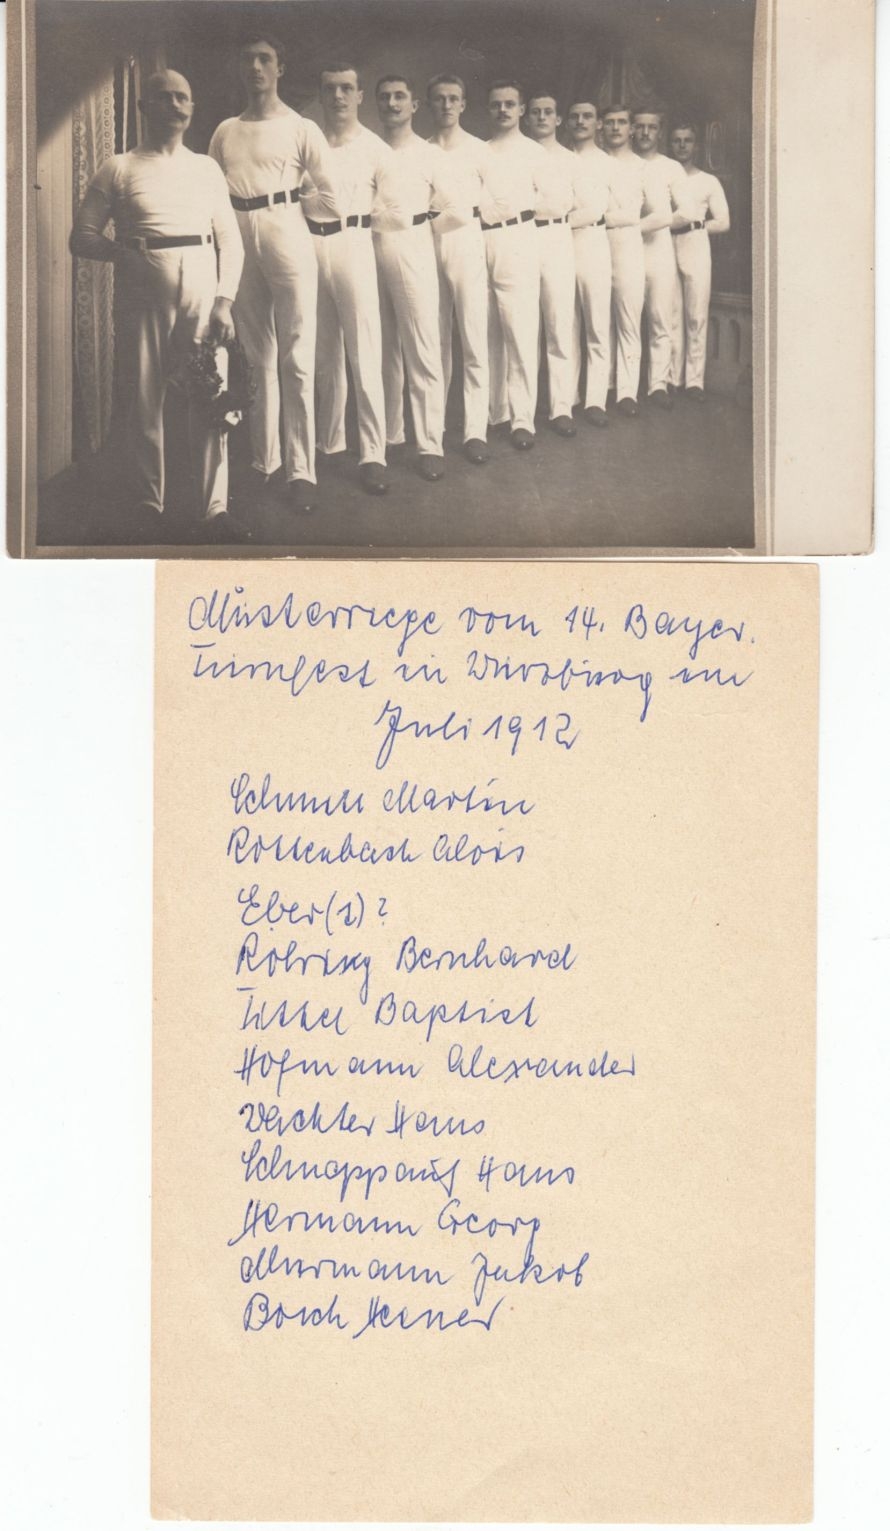 Musterriege vom 14. Bayer.
Turnfest in Würzburg im
Juli 1912
Schmitt Martin
Rottenbach Alois
Eber(1)?
Röhrig Bernhard
Baptist
Hofmann Alexander
Wächter Hans
Schnappauf Hans
Hermann Georg
Murmann Jakob
Heiner